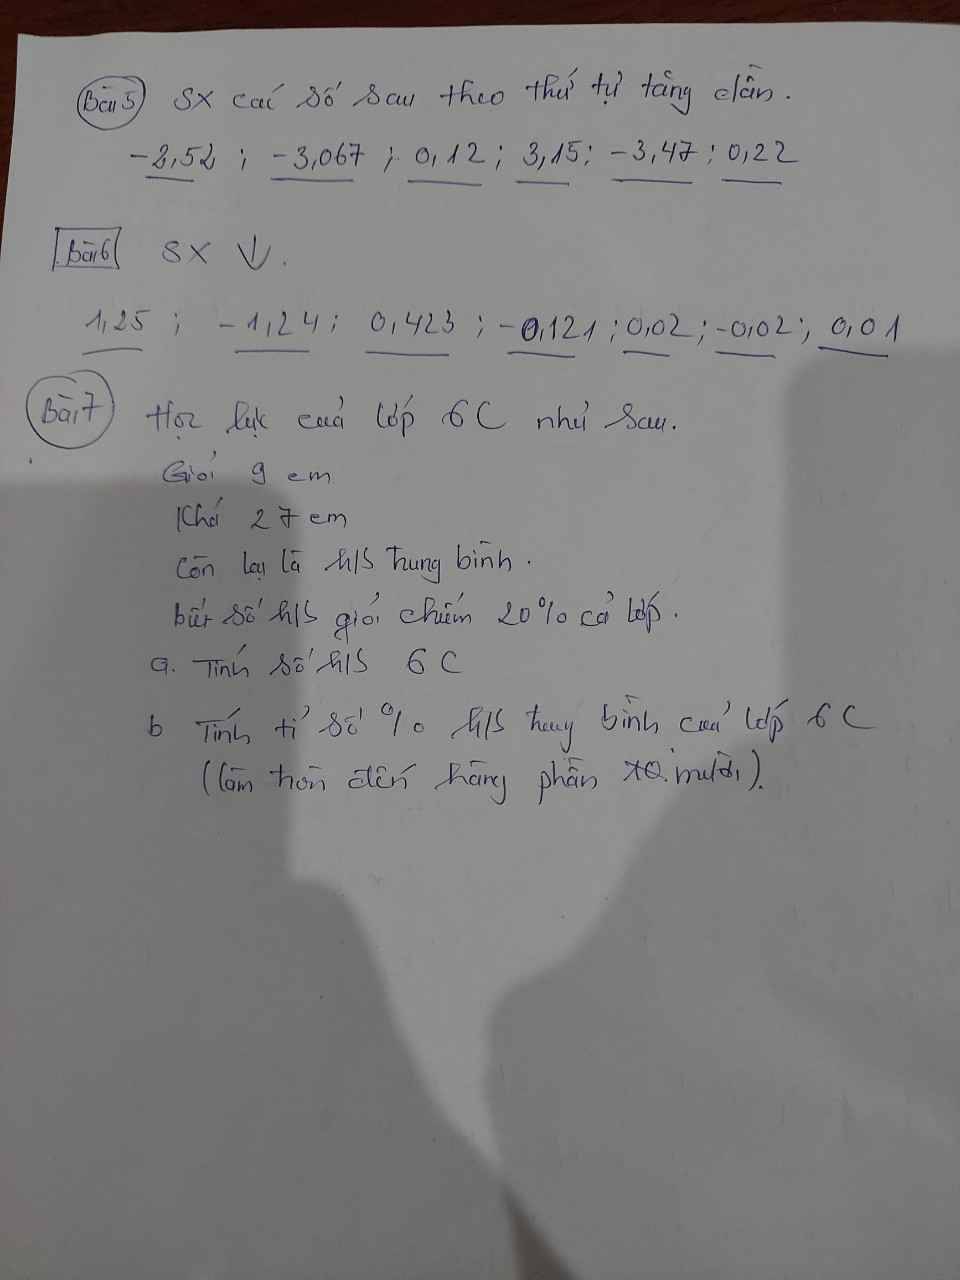 Bài 5 SX các số sau theo thứ tự tăng dần.
-2,52 ; -3,067 ; 0,12 ; 3,15 ; -3,47 ; 0,22
Bài 6 SX ↓.
1,25 ; -1,24 ; 0,423 ; -0,121 ; 0,02 ; -0,02 ; 0,01
Bài 7 Học lực của lớp 6C như sau.
Giỏi 9 em
Khá 27 em
Còn lại là h/s trung bình.
biết số h/s giỏi chiếm 20% cả lớp.
a. Tính số h/s 6C
b Tính tỉ số % h/s trung bình của lớp 6C
(làm tròn đến hàng phần mười).